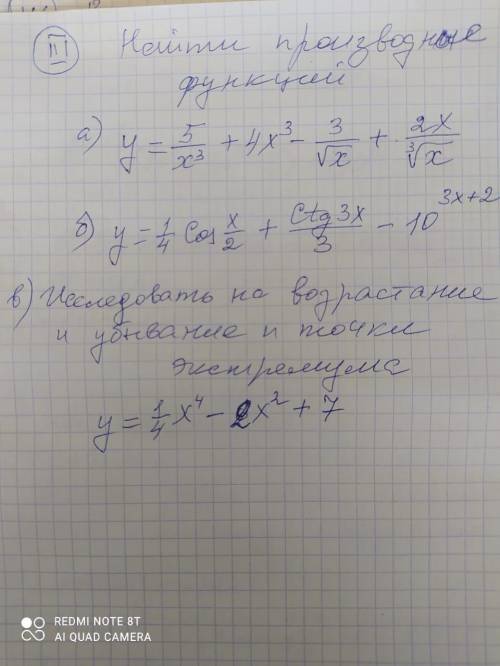 III Найти производные
функций
а) y = 5/x³ + 4x³ - 3/√x + 2x/∛x
б) y = 1/4 Cos x/2 + Ctg3x/3 - 10^(3x+2)
в) Исследовать на возрастание
и убывание и точки
экстремума
y = 1/4 x⁴ - 2x² + 7
REDMI NOTE 8T
AI QUAD CAMERA